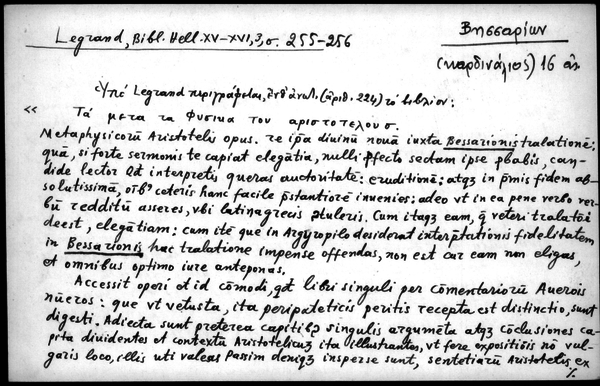 Legrand, Bibl. Hell. XV-XVI, 3, σ. 255-256
Βησσαρίων
(καρδινάλιος) 16 αἰ.
Ὑπὸ Legrand περιγράφεται, (ἀριθ. 224) τὸ βιβλίον:
« Τά μετα τα Φυσικα του αριστοτελουσ.
Metaphysicorū Aristotelis opus. re ip̄a divinū nouā iuxta Bessarionis tralationē:
quā, si forte sermonis te capiat elegātia, nulli ꝓfecto sectam ipse ꝓbabis, can-
dide lector interpretis queras auctoritatē: eruditionē: atqz in p̄mis fidem ab-
solutissimā, ceteris hanc facile p̄stantiorē inuenies: adeo vt in ea pene verbo ver-
bū redditū asseres, vbi latina grecis ꝯtuleris. Cum itaqz eam, q̄ veteri tralatōi
deest, elegātiam: cum itē que in Argyropilo desiderat interp̄tationis fidelitatem
in Bessarionis hac tralatione impense offendas, non est cur eam non eligas,
et omnibus optimo iure anteponas.
Accessit operi et id cōmodi, qđ libri singuli per cōmentariorū Auerois
nūeros: que vt vetusta, ita peripateticis peritis recepta est distinctio, sunt
digesti. Adiecta sunt preterea capitibꝫ singulis argumēta atqz cōclusiones ca-
pita diuidentes et contextū Aristotelicuz ita illustrantes, vt fore expositiōis nō vul-
garis loco, illis uti valeas Passim deniqz insperse sunt, sentētiarū Aristotelis ex
./.